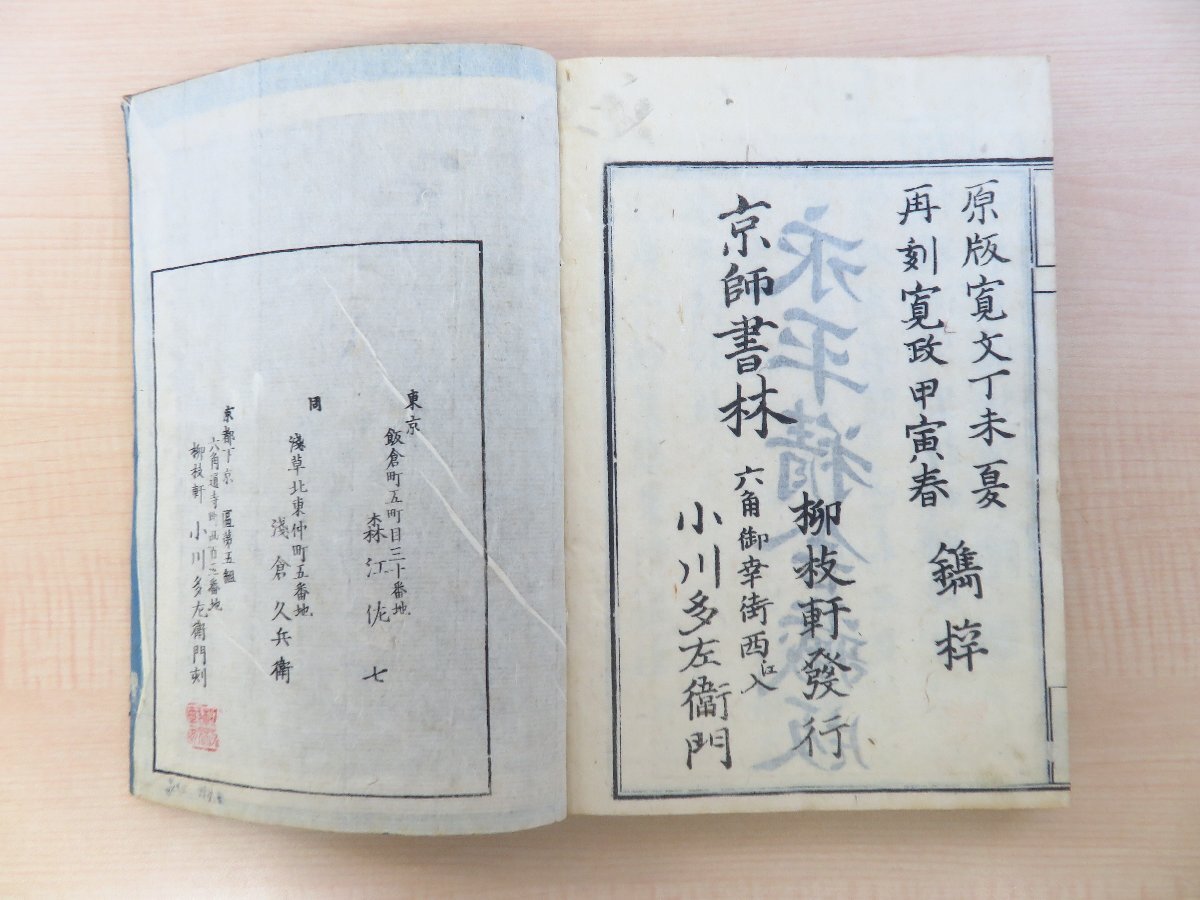 原版寛文丁未夏
再刻寛政甲寅春
鐫梓
柳枝軒發行
京師書林
六角御幸街西江入
小川多左衛門
東京
飯倉町五町目三十番地
森江佐七
同
淺草北東仲町五番地
淺倉久兵衛
京都下京區第五組
六角通寺町西
番地
柳枝軒 小川多左衛門刺